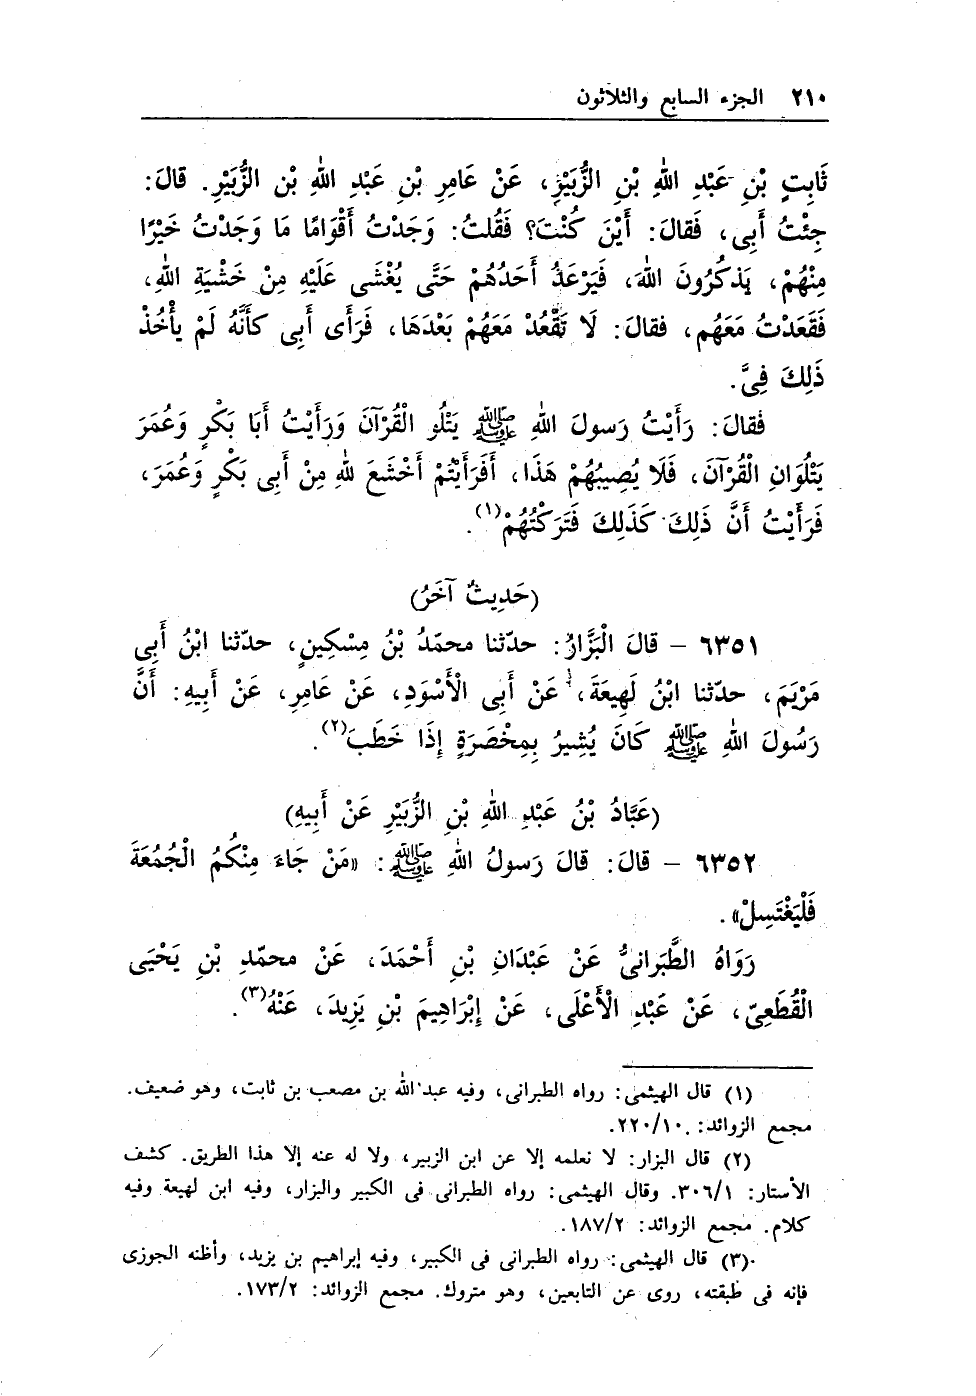 ٢١٠ الجزء السابع والثلاثون
ثَابِتٍ بْنِ عَبْدِ اللهِ بْنِ الزُّبَيْرِ، عَنْ عَامِرِ بْنِ عَبْدِ اللهِ بْن الزُّبَيْرِ. قالَ:
جِئْتُ أَبِى، فَقالَ: أَيْنَ كُنْتَ؟ فَقُلتُ: وَجَدْتُ أَقْوَامًا مَا وَجَدْتُ خَيْرًا
مِنْهُمْ، يَذكُرُونَ اللهَ، فَيَرْعَدُ أَحَدُهُمْ حَتَّى يُغْشَى عَلَيْهِ مِنْ خَشْيَةِ اللهِ،
فَقَعَدْتُ مَعَهُم، فقالَ: لَا تَقْعُدْ مَعَهُمْ بَعْدَهَا، فَرَأَى أَبِى كأَنَّهُ لَمْ يأْخُذْ
ذَلِكَ فِىَّ.
فَقالَ: رَأَيْتُ رَسولَ اللهِ ﷺ يَتْلُو الْقُرْآنَ وَرَأَيْتُ أَبَا بَكْرٍ وَعُمَرَ
يَتْلُوَانِ الْقُرْآنَ، فَلَا يُصِيبُهُمْ هَذَا، أَفَرَأَيْتُمْ أَخْشَعَ للهِ مِنْ أَبِى بَكْرٍ وَعُمَرَ،
فَرَأَيْتُ أَنَّ ذَلِكَ كَذَلِكَ فَتَرَكْتُهُمْ(١).
(حَدِيثٌ آخَرُ)
٦٣٥١ – قالَ الْبَزَّارُ: حدّثنا محمّدُ بْنُ مِسْكِينٍ، حدّثنا ابْنُ أَبِى
مَرْيَمَ، حدّثنا ابْنُ لَهِيعَةَ، عَنْ أَبِى الْأَسْوَدِ، عَنْ عَامِرِ، عَنْ أَبِيهِ: أَنَّ
رَسُولَ اللهِ ﷺ كَانَ يُشِيرُ بِمِخْصَرَةٍ إِذَا خَطَبَ(٢).
(عَبَّادُ بْنُ عَبْدِ اللهِ بْنِ الزُّبَيْرِ عَنْ أَبِيهِ)
٦٣٥٢ – قالَ: قالَ رَسولُ اللهِ ﷺ: «مَنْ جَاءَ مِنْكُمُ الْجُمُعَةَ
فَلْيَغْتَسِلْ».
رَوَاهُ الطَّبَرانىُّ عَنْ عَبْدَانِ بْنِ أَحْمَدَ، عَنْ محمّدِ بْنِ يَحْيَى
الْقُطَعِىّ، عَنْ عَبْدِ الْأَعْلَى، عَنْ إِبْرَاهِيمَ بْنِ يَزِيدَ، عَنْهُ(٣).
(١) قال الهيثمى: رواه الطبرانى، وفيه عبد الله بن مصعب بن ثابت، وهو ضعيف.
مجمع الزوائد: ٢٢٠/١٠.
(٢) قال البزار: لا نعلمه إلا عن ابن الزبير، ولا له عنه إلا هذا الطريق. كشف
الأستار: ٣٠٦/١. وقال الهيثمى: رواه الطبرانى فى الكبير والبزار، وفيه ابن لهيعة وفيه
كلام. مجمع الزوائد: ١٨٧/٢.
(٣) قال الهيثمى: رواه الطبرانى فى الكبير، وفيه إبراهيم بن يزيد، وأظنه الجوزى
فإنه فى طبقته، روى عن التابعين، وهو متروك. مجمع الزوائد: ١٧٣/٢.